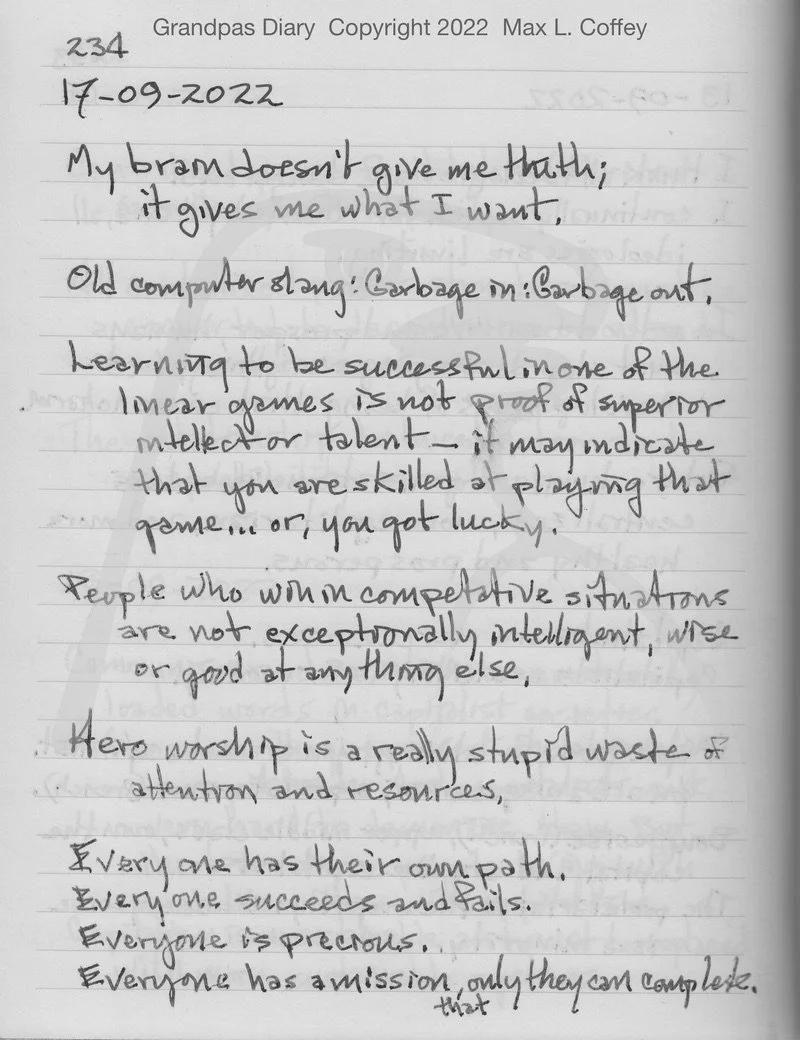 Grandpas Diary Copyright 2022 Max L. Coffey
234
17-09-2022
My brain doesn't give me thuth;
it gives me what I want.
Old computer slang: Garbage in: Garbage out.
Learning to be successful in one of the
linear games is not proof of superior
intellect or talent — it may indicate
that you are skilled at playing that
game... or, you got lucky.
People who win in competative situations
are not exceptionally intelligent, wise
or good at anything else.
Hero worship is a really stupid waste of
attention and resources.
Every one has their own path.
Every one succeeds and fails.
Everyone is precious.
Everyone has a mission, only they can complete.
that